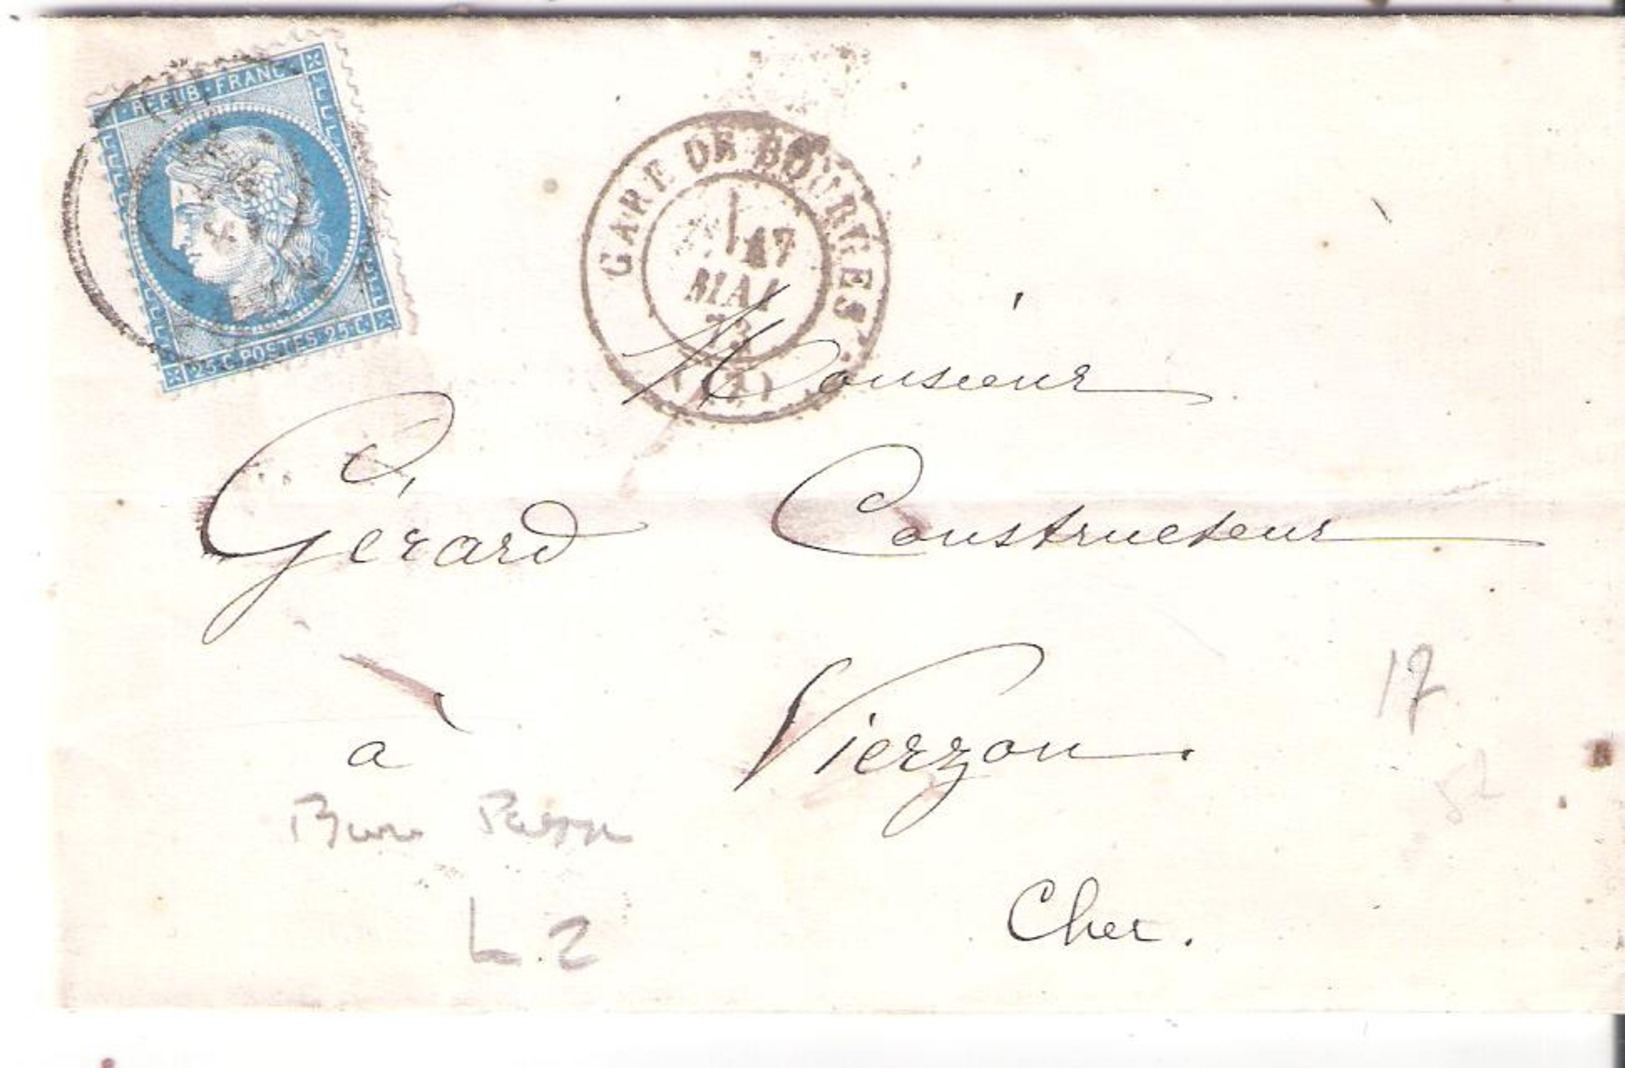 REPUB·FRANC
25·C·POSTES·25·C
GARE DE BOURGES
17
MAI
73
Monsieur
Gérard Constructeur
à Vierzon.
17
Cher.
L. 2